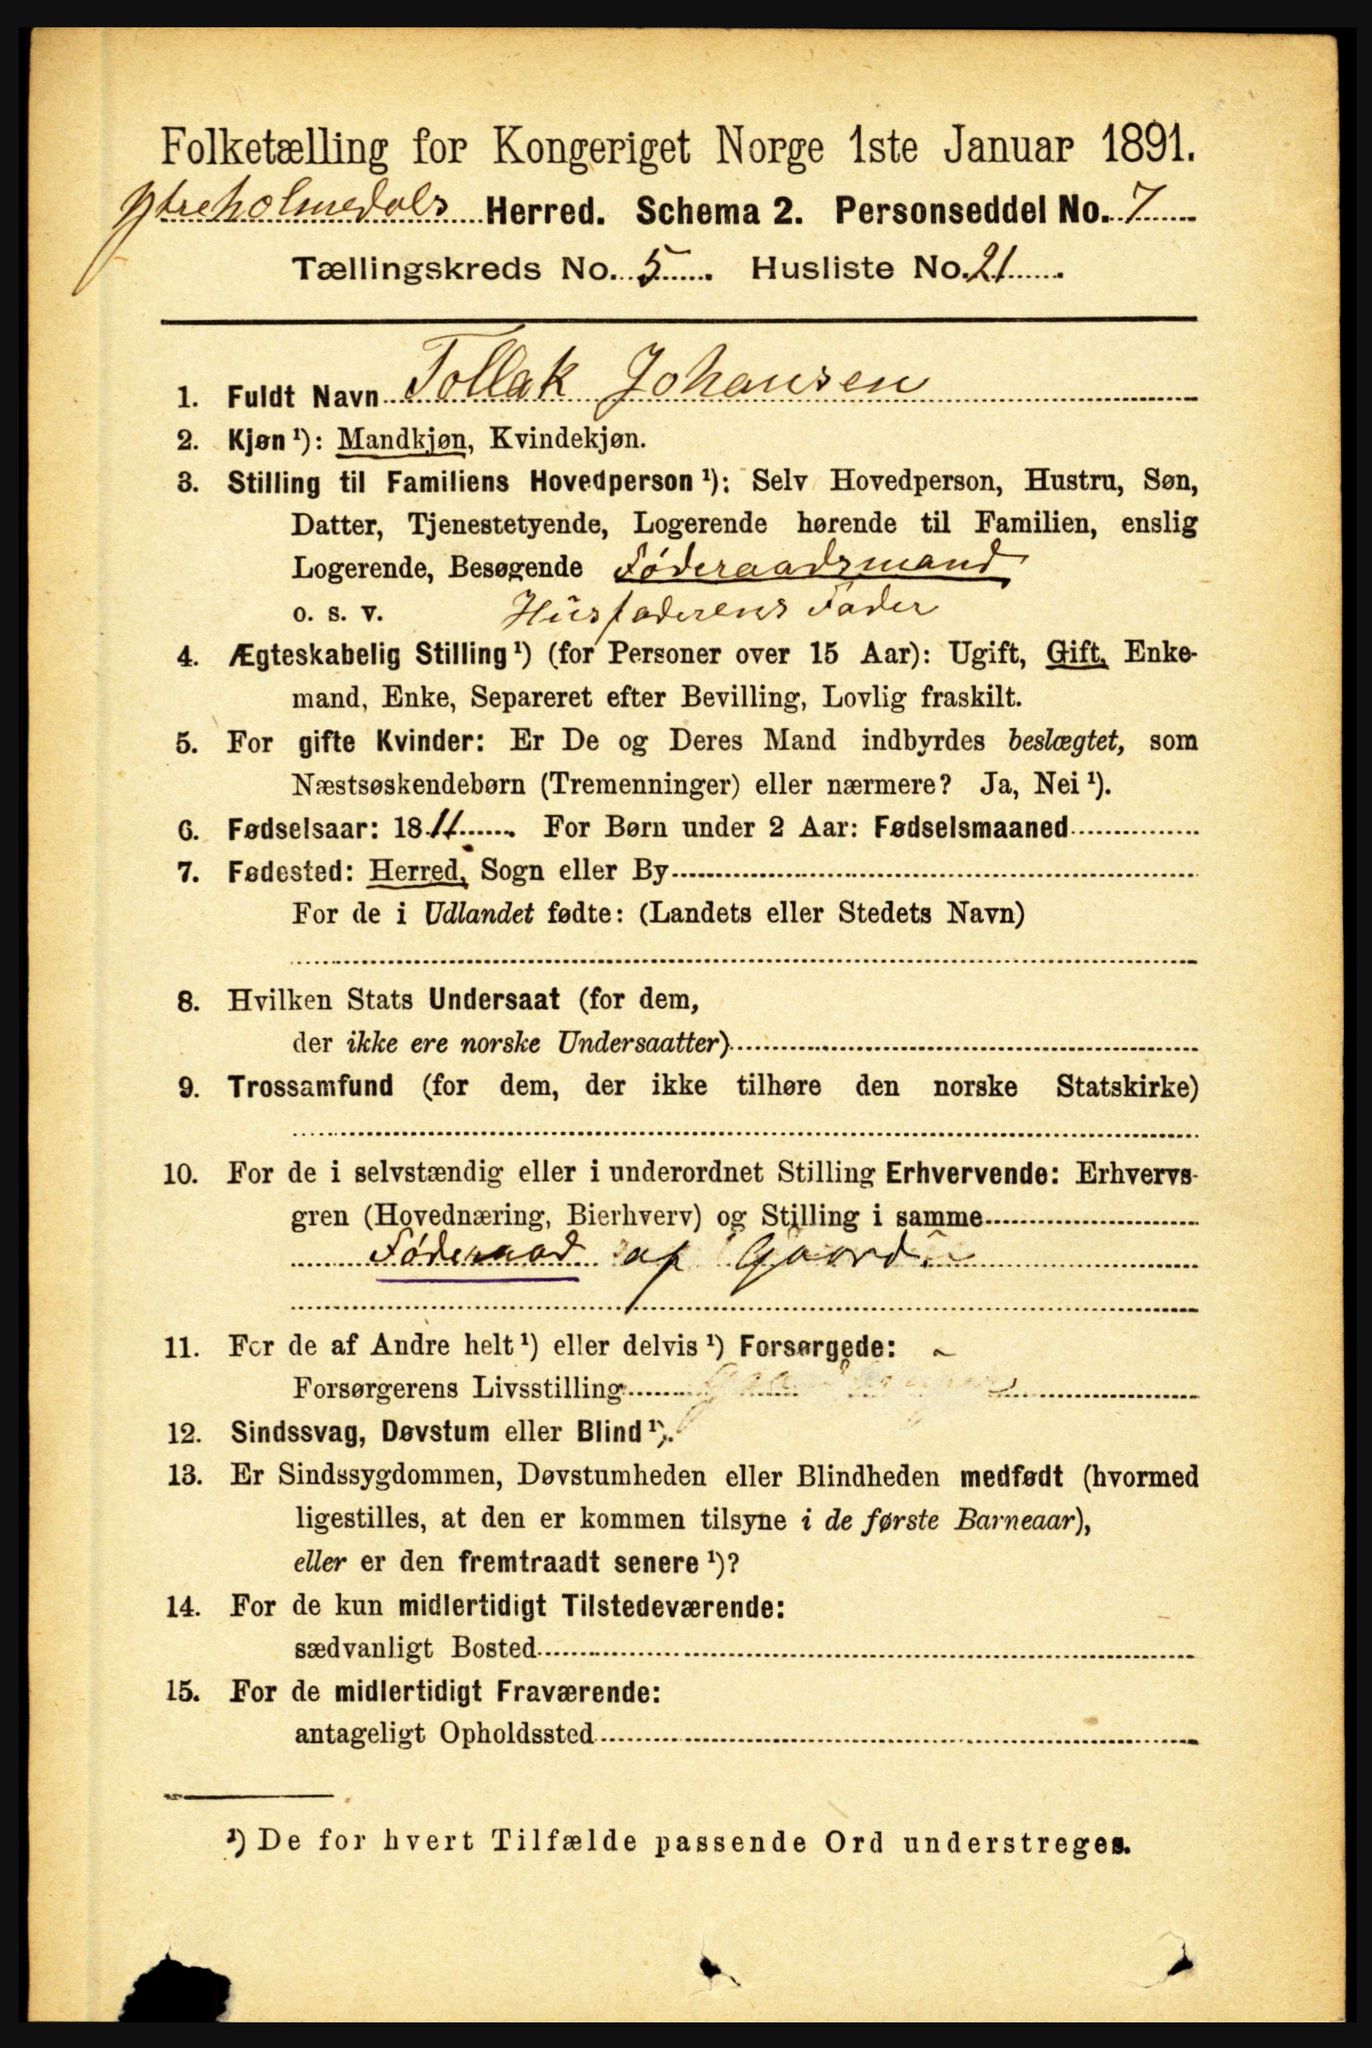 Folketælling for Kongeriget Norge 1ste Januar 1891.
Ytreholmedals Herred. Schema 2. Personseddel No. 7
Tællingskreds No. 5. Husliste No. 21
1. Fuldt Navn Tollak Johansen
2. Kjøn ¹): Mandkjøn, Kvindekjøn.
3. Stilling til Familiens Hovedperson ¹): Selv Hovedperson, Hustru, Søn,
Datter, Tjenestetyende, Logerende hørende til Familien, enslig
Logerende, Besøgende Föderaadsmand
o. s. v. Husfaderens Fader
4. Ægteskabelig Stilling ¹) (for Personer over 15 Aar): Ugift, Gift, Enke-
mand, Enke, Separeret efter Bevilling, Lovlig fraskilt.
5. For gifte Kvinder: Er De og Deres Mand indbyrdes beslægtet, som
Næstsøskendebørn (Tremenninger) eller nærmere? Ja, Nei ¹).
6. Fødselsaar: 1811. For Børn under 2 Aar: Fødselsmaaned
7. Fødested: Herred, Sogn eller By
For de i Udlandet fødte: (Landets eller Stedets Navn)
8. Hvilken Stats Undersaat (for dem,
der ikke ere norske Undersaatter)
9. Trossamfund (for dem, der ikke tilhøre den norske Statskirke)
10. For de i selvstændig eller i underordnet Stilling Erhvervende: Erhvervs-
gren (Hovednæring, Bierhverv) og Stilling i samme
Föderaad af Gaard.
11. For de af Andre helt ¹) eller delvis ¹) Forsørgede: ~
Forsørgerens Livsstilling
12. Sindssvag, Døvstum eller Blind ¹).
13. Er Sindssygdommen, Døvstumheden eller Blindheden medfødt (hvormed
ligestilles, at den er kommen tilsyne i de første Barneaar),
eller er den fremtraadt senere ¹)?
14. For de kun midlertidigt Tilstedeværende:
sædvanligt Bosted
15. For de midlertidigt Fraværende:
antageligt Opholdssted
¹) De for hvert Tilfælde passende Ord understreges.